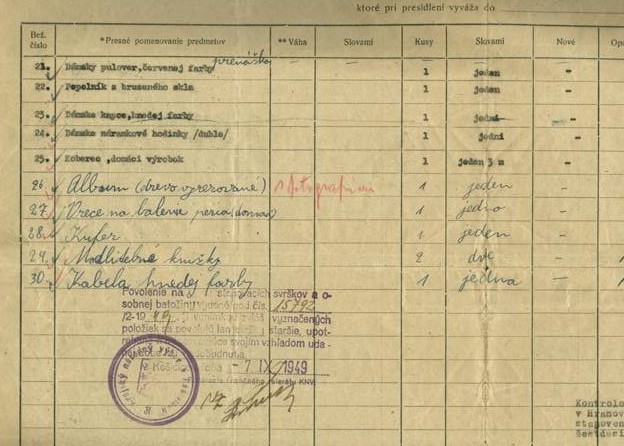 ktoré pri presídlení vyváža do
Bež. číslo *Presné pomenovanie predmetov **Váha Slovami Kusy Slovami Nové
prenáška
21. Dámsky pulover, červenej farby — — 1 jeden -
22. Popelník z bruseného skla 1 jeden -
23. Dámske kapce, hnedej farby 1 jedni -
24. Dámske náramkové hodinky /duble/ 1 jedni -
25. Koberec, domáci výrobok 1 jeden 3 m -
26. Album (drevo vyrezované) s fotografiam 1 jeden -
27. Vrece na balenie peria (domac) 1 jedno -
28. Kufer 1 jeden -
29. Modlitebné knižky 2 dve -
30. Kabela hnedej farby 1 jedna —
Povolenie na sťahovacích svrškov a o-
sobnej batožiny pod čís. 15792
/2-19 49 vyznačených
položiek sa povolil len staršie, upot-
svojim vzhľadom uda-
Košic - 7 IX 1949
referátu KNV
Kontrolo
v Hranov
stapoven
šestdesi